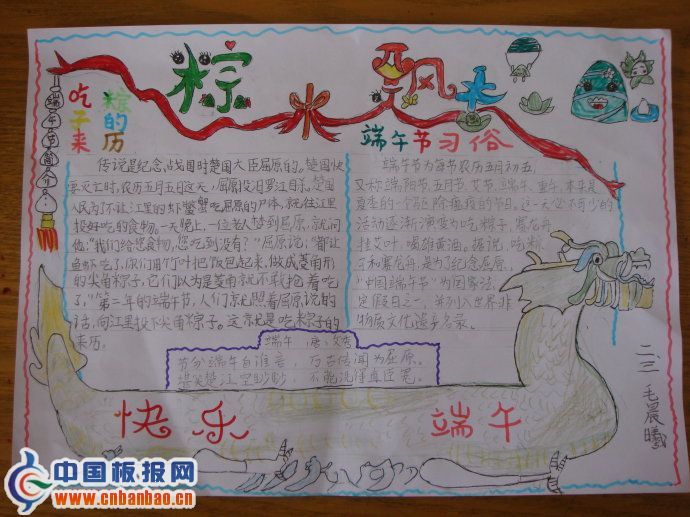 粽 飘
端午节简介
吃粽子的来历
传说是纪念战国时楚国大臣屈原的。楚国快
要灭亡时,农历五月五日这天,屈原投汨罗江自杀。楚国
人民为了不让江里的虾蟹鳖吃屈原的尸体,就往江里
投好吃的食物。一天晚上,一位老人梦到屈原,就问
他:“我们给您食物,您吃到没有?”屈原说,“都让
鱼虾吃了,你们用竹叶把饭包起来,做成菱角形
的尖角粽子,它们以为是菱角就不敢抢着吃
了。”第二年的端午节,人们就照着屈原说的
话,向江里投下尖角粽子。这就是吃粽子的
来历。
端午节习俗
端午节为每节农历五月初五,
又称端阳节、五月节、艾节、端午、重午,本来是
夏季的一个驱除瘟疫的节日。这一天必不可少的
活动逐渐演变为吃粽子,赛龙舟,
挂艾叶,喝雄黄油。据说,吃粽
子和赛龙舟,是为了纪念屈原。
“中国端午节”为国家法
定假日之一,并列入世界非
物质文化遗产名录。
端午 唐:文秀
节分端午自谁言,万古传闻为屈原。
堪笑楚江空渺渺,不能洗得直臣冤。
快乐 端午
二、三 毛晨曦
中国板报网
www.cnbanbao.cn